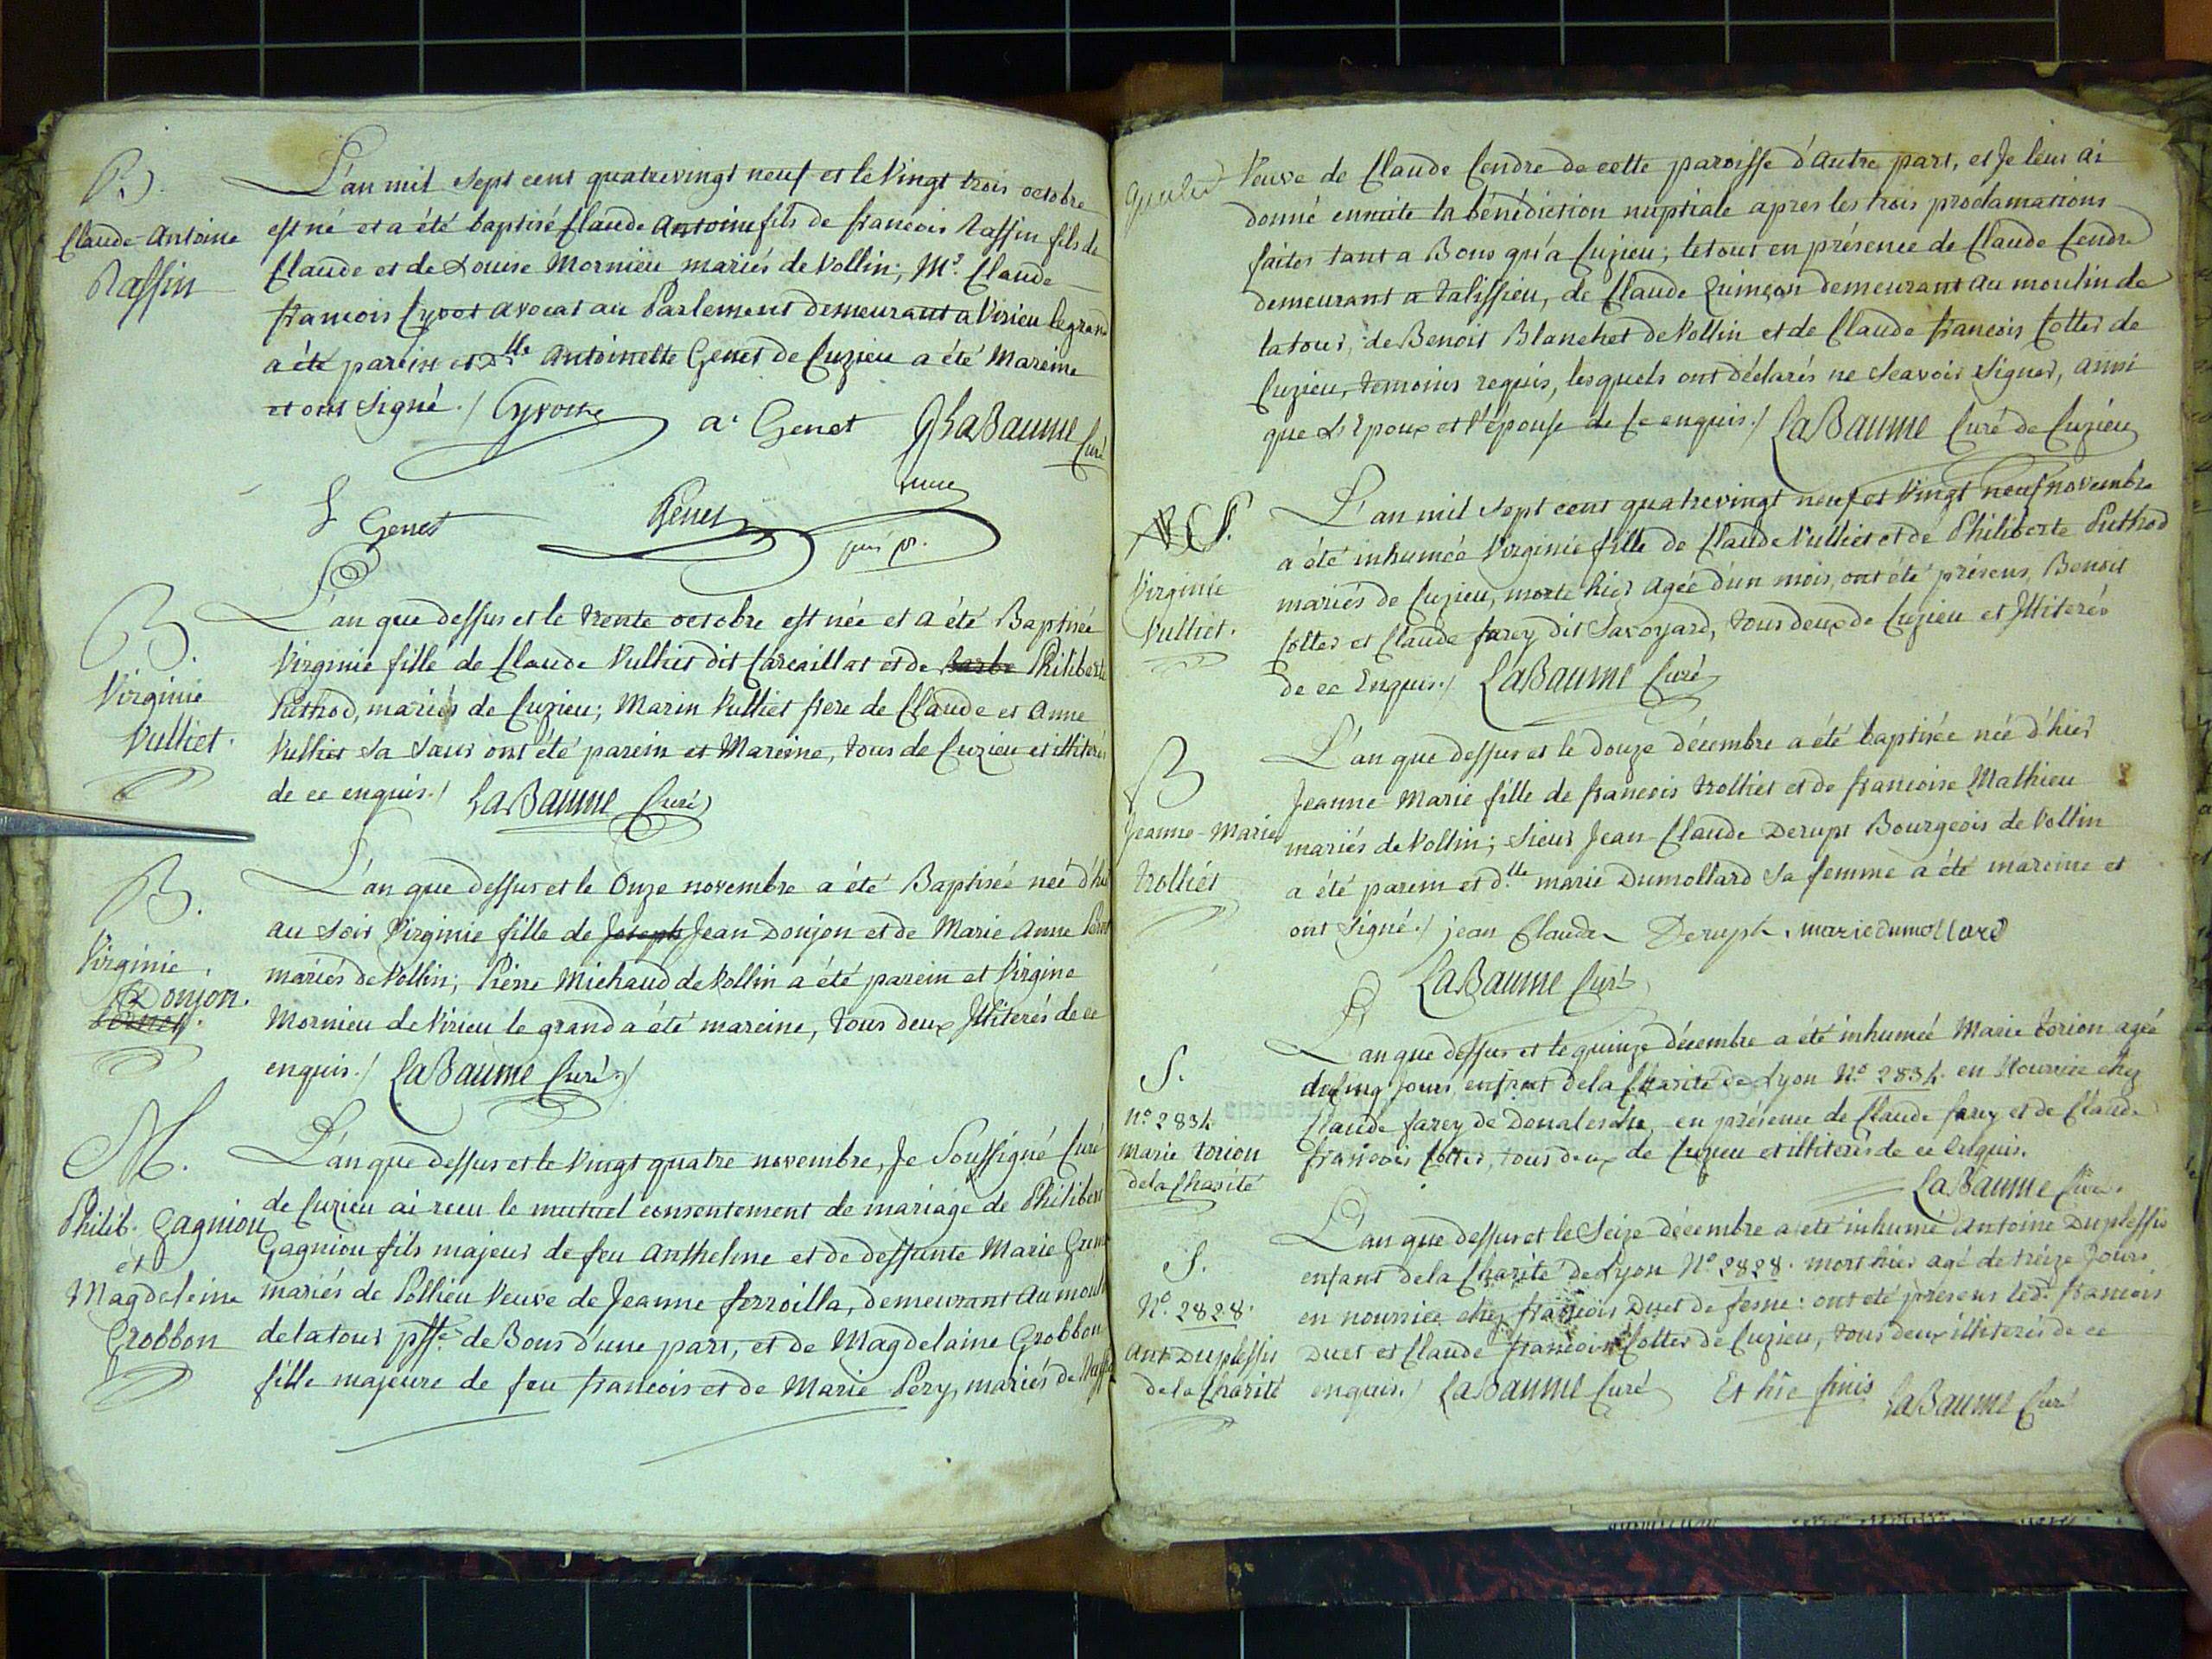 B.
Claude Antoine
Raffin
L'an mil sept cent quatrevingt neuf et le vingt trois octobre
est né et a été baptisé Claude Antoine fils de francois Raffin fils de
Claude et de Louise Mornieu mariés de Vollin; Mr. Claude
francois Cyvot avocat au Parlement demeurant a Virieu le grand
a été parein et Dlle Antoinette Genet de Cuzieu a été Mareine
et ont signé./ Cyvot a. Genet LaBaume Curé
Genet Genet
B.
Virginie
Vulliet.
L'an que dessus et le trente octobre est née et a été Baptisée
Virginie fille de Claude Vulliet dit Carcaillat et de Barbe Philiberte
Puthod, mariés de Cuzieu; Marin Vulliet frere de Claude et Anne
Vulliet sa sœur ont été parein et Mareine, tous de Cuzieu et illiterés
de ce enquis./ LaBaume Curé
B.
Virginie
Donjon.
L'an que dessus et le Onze novembre a été Baptisée née d'hier
au soir Virginie fille de Joseph Jean Donjon et de Marie Anne
mariés de Vollin; Pierre Michaud de Vollin a été parein et Virgine
Mornieu de Virieu le grand a été mareine, tous deux Illiterés de ce
enquis./ LaBaume Curé./
M.
Philib. Gagniou
et
Magdeleine
Grobbon
L'an que dessus et le vingt quatre novembre, Je Soussigné Curé
de Cuzieu ai recu le mutuel consentement de mariage de Philibert
Gagniou fils majeur de feu Anthelme et de deffunte Marie
mariés de Pollieu Veuve de Jeanne ferroilla, demeurant au moulin
de la tour psse. de Bons d'une part, et de Magdelaine Grobbon
fille majeure de feu francois et de Marie Pery, mariés de
Veuve de Claude Cendre de cette paroisse d'autre part, et Je leur ai
donné ensuite la bénédiction nuptiale apres les trois proclamations
faites tant a Bons qu'a Cuzieu; le tout en présence de Claude Cendre
demeurant a talissieu, de Claude Quinson demeurant au moulin de
la tour, de Benoit Blanchet de Vollin et de Claude francois Cottet de
Cuzieu, temoins requis, lesquels ont déclarés ne sçavoir signer, ainsi
que L'Epoux et l'épouse de ce enquis./ LaBaume Curé de Cuzieu
S.
Virginie
Vulliet.
L'an mil sept cent quatrevingt neuf et vingt neuf novembre
a été inhumée Virginie fille de Claude Vulliet et de Philiberte Puthod
mariés de Cuzieu, morte hier agée d'un mois, ont été présens, Benoit
Cottet et Claude farey dit Savoyard, tous deux de Cuzieu et Illiterés
de ce Enquis./ LaBaume Curé
B
Jeanne-Marie
trolliet
L'an que dessus et le douze décembre a été baptisée née d'hier
Jeanne-Marie fille de francois trolliet et de francoise Mathieu
mariés de Vollin; Sieur Jean-Claude Derupt Bourgeois de Vollin
a été parein et d.lle marie Dumollard sa femme a été mareine et
ont signé./ jean Claude Derupt. marie dumollard
LaBaume Curé
S.
no. 2834
Marie torion
de la Charité
L'an que dessus et le quinze décembre a été inhumée Marie torion agée
de cinq Jours, enfant de la Charité de Lyon No. 2834. en Nourrice chez
Claude farey de, en présence de Claude farey et de Claude
francois Cottet, tous deux de Cuzieu et illiterés de ce enquis.
LaBaume Curé.
S.
No. 2828.
Ant. Duplessis
de la Charité
L'an que dessus et le Seize décembre a été inhumé Antoine Duplessis
enfant de la Charité de Lyon No. 2828. mort hier agé de treize Jours
en nourrice chez francois Duet de: ont été présens led. francois
Duet et Claude francois Cottet de Cuzieu, tous deux illiterés de ce
enquis./ LaBaume Curé Et hic finis LaBaume Curé